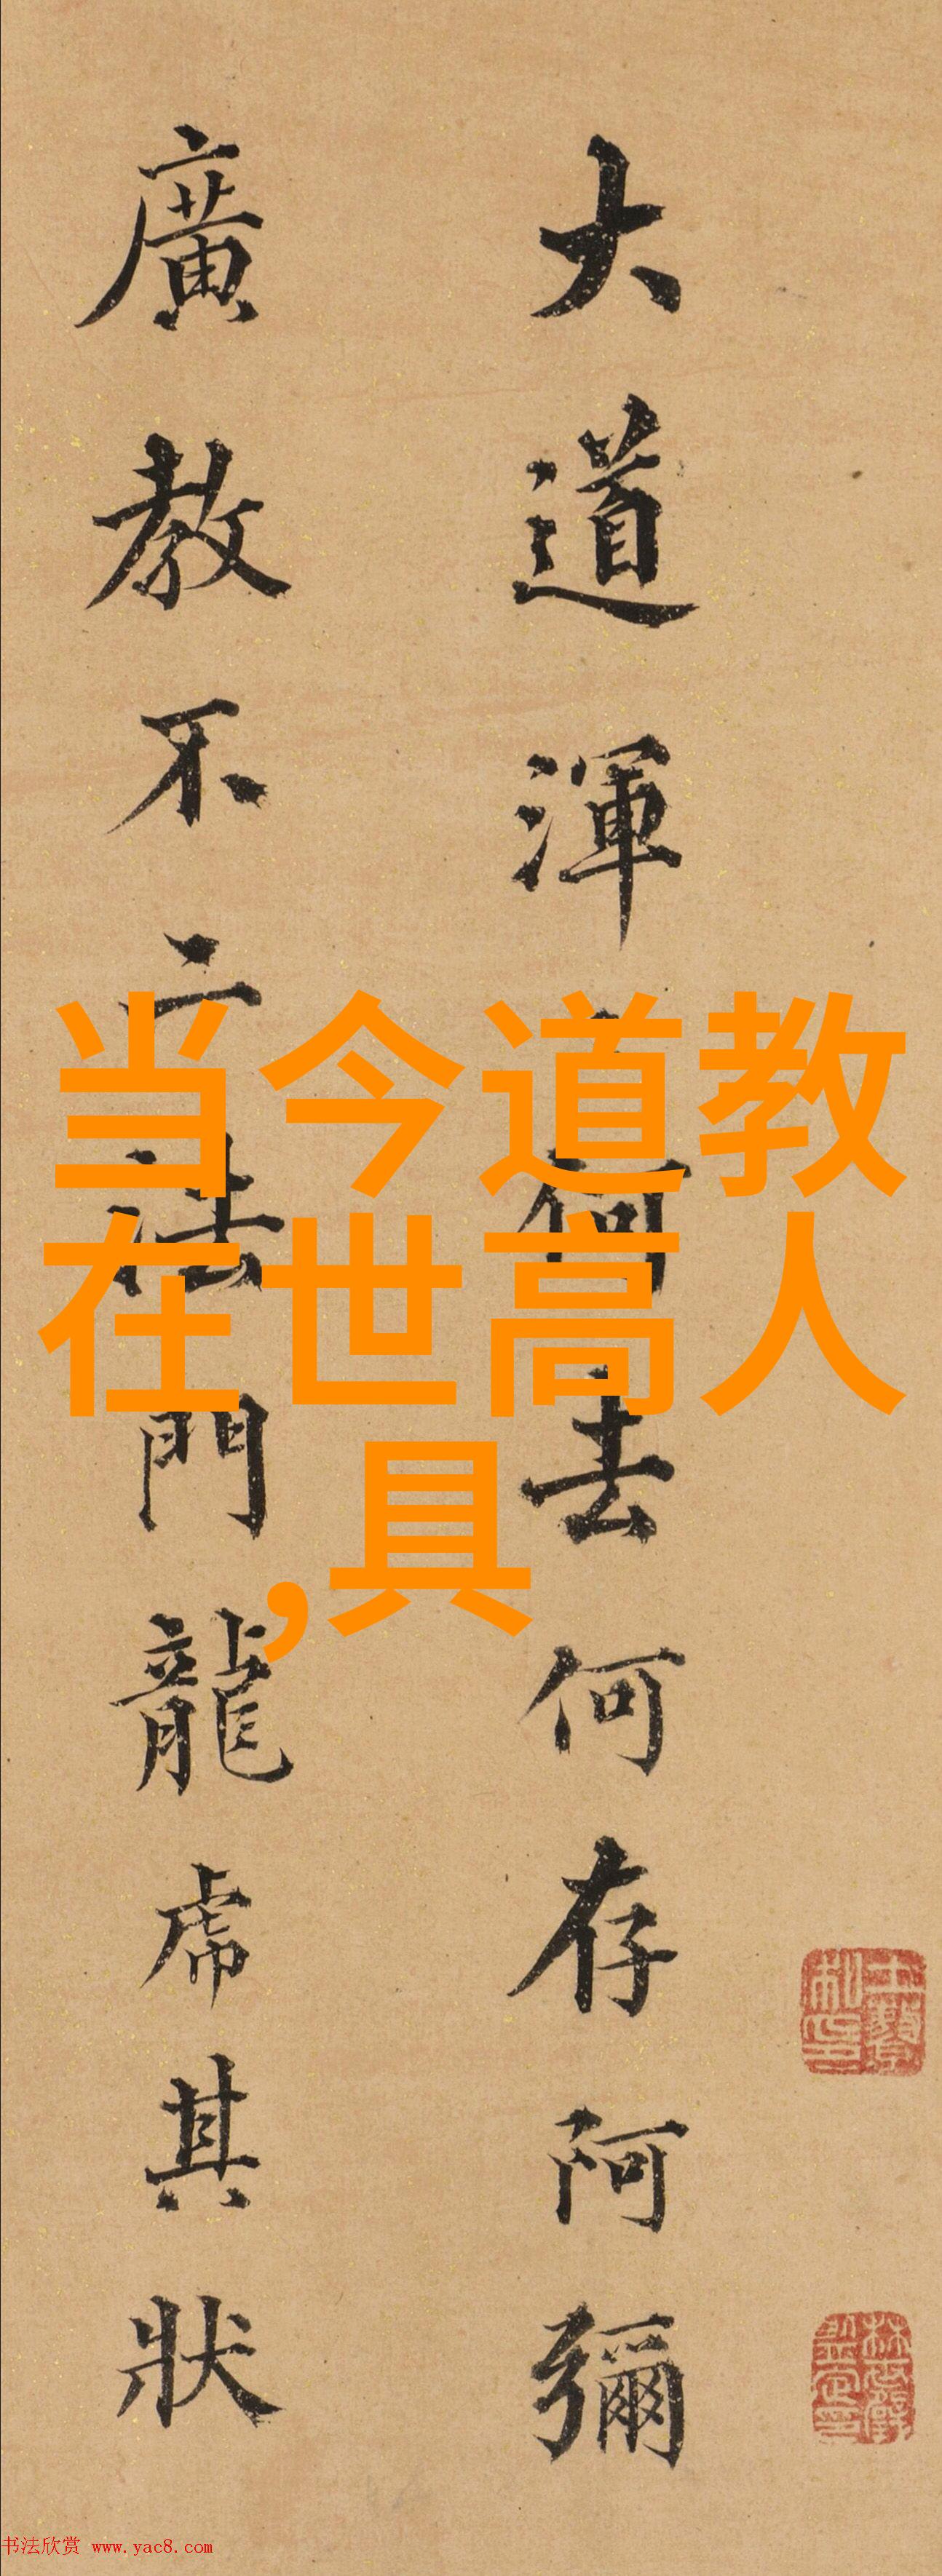 大道渾何去何存阿彌
廣教不二法門龍虎其狀
当今道教
在世高人
,具
书法欣赏 www.yac8.com